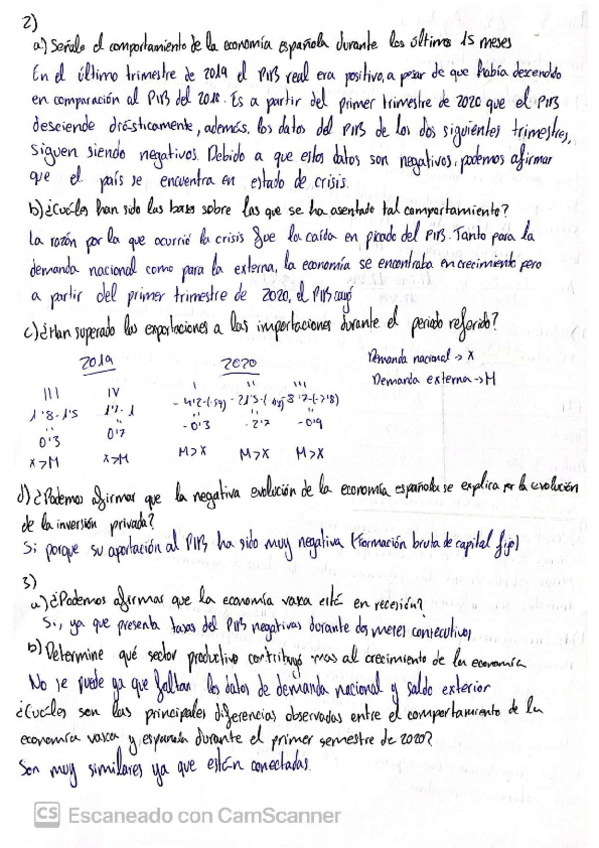 2)
a) Señale el comportamiento de la economía española durante los últimos 15 meses
En el último trimestre de 2019 el PIB real era positivo, a pesar de que había descendido
en comparación al PIB del 2018. Es a partir del primer trimestre de 2020 que el PIB
desciende drásticamente, además, los datos del PIB de los dos siguientes trimestres,
siguen siendo negativos. Debido a que estos datos son negativos, podemos afirmar
que el país se encuentra en estado de crisis.
b) ¿Cuáles han sido las bases sobre las que se ha asentado tal comportamiento?
La razón por la que ocurrió la crisis fue la caída en picado del PIB. Tanto para la
demanda nacional como para la externa, la economía se encontraba en crecimiento pero
a partir del primer trimestre de 2020, el PIB cayó
c) ¿Han superado las exportaciones a las importaciones durante el periodo referido?
2019 2020 Demanda nacional -> X
Demanda externa -> M
III IV I II III
1'8-1'5
0'3 0'7 -0'3 -2'7 -0'9
X>M X>M M>X M>X M>X
d) ¿Podemos afirmar que la negativa evolución de la economía española se explica por la evolución
de la inversión privada?
Si porque su aportación al PIB ha sido muy negativa (Formación bruta de capital fijo)
3)
a) ¿Podemos afirmar que la economía vasca esté en recesión?
Si, ya que presenta tasas del PIB negativas durante dos meses consecutivos
b) Determine qué sector productivo contribuyó mas al crecimiento de la economía
No se puede ya que faltan los datos de demanda nacional y saldo exterior
¿Cuáles son las principales diferencias observadas entre el comportamiento de la
economía vasca y española durante el primer semestre de 2020?
Son muy similares ya que están conectadas.
CS Escaneado con CamScanner